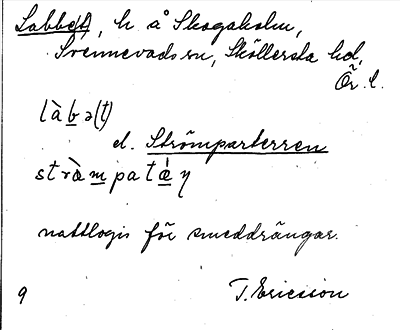 Labbe(t), h å Skogaholm,
Svennevads sn, Sköllersta hd,
Ör. l.
làbə(t)
el. Strömparterren
stræ̀mpatǽŋ
nattlogis för smeddrängar.
9 T. Ericsson